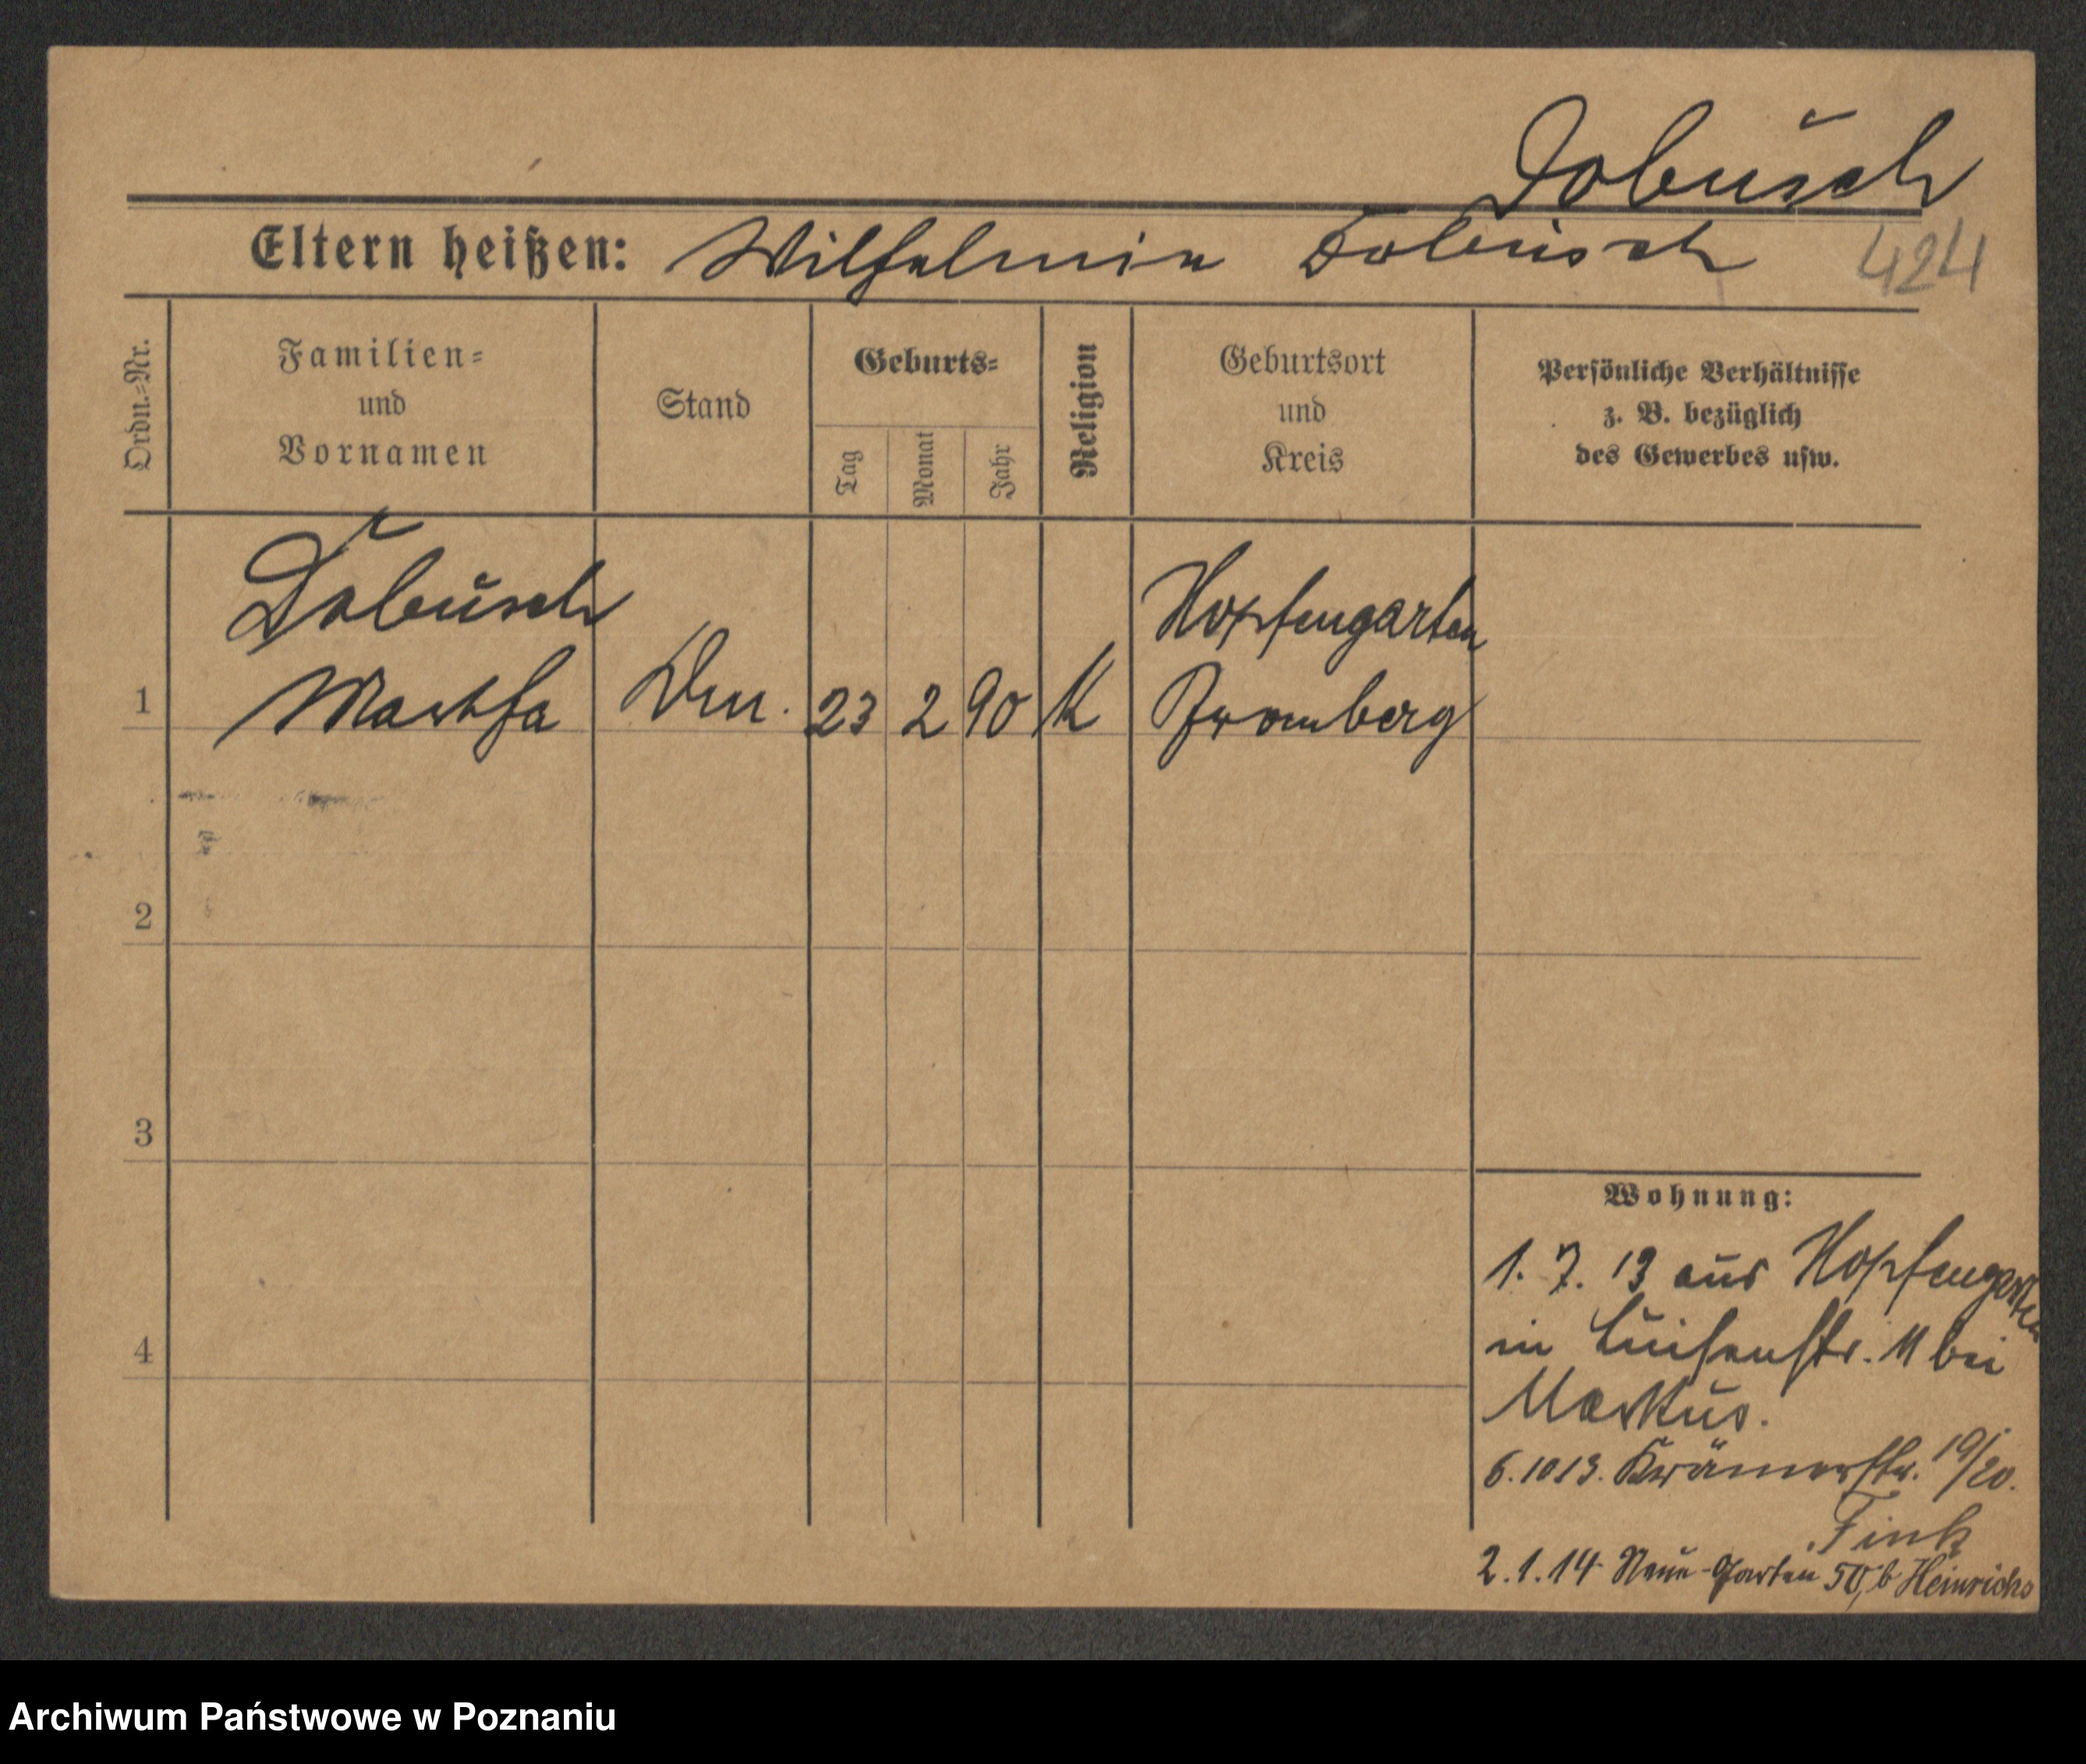 Dobusch
Eltern heißen: Wilhelmine Dobusch 424
Ordn.=Nr.
Familien=
und
Vornamen
Stand
Geburts=
Tag
Monat
Jahr
Religion
Geburtsort
und
Kreis
Persönliche Verhältnisse
z. B. bezüglich
des Gewerbes usw.
Dobusch Hopfengarten
1 Martha 23 2 90 K Bromberg
2
3
4
Wohnung:
1. 7. 13 aus Hopfengarten
in Luisenstr. 11 bei
Markus.
6. 10 13. Krämerstr. 19/20.
Fink
2. 1. 14 Neue-Garten 50, b Heinrichs
Archiwum Państwowe w Poznaniu